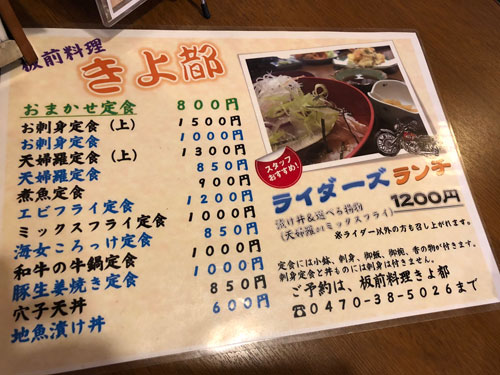 板前料理
きよ都
おまかせ定食 800円
お刺身定食（上） 1500円
お刺身定食 1000円
天婦羅定食（上） 1300円
天婦羅定食 850円
煮魚定食 900円
エビフライ定食 1200円
ミックスフライ定食 1000円
海女ころっけ定食 850円
和牛の牛鍋定食 1000円
豚生姜焼き定食 1000円
穴子天丼 850円
地魚漬け丼 600円
スタッフ
おすすめ！
ライダーズランチ
1200円
漬け丼＆選べる揚物
（天婦羅orミックスフライ）
※ライダー以外の方も召し上がれます。
定食には小鉢、刺身、御飯、御椀、香の物が付きます。
刺身定食と丼ものには刺身は付きません。
ご予約は、板前料理きよ都
☎0470-38-5026まで